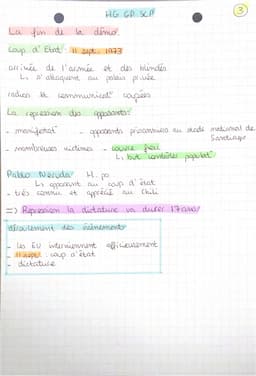 HG GP SCP
3
La fin de la démo.
Coup d'Etat : 11 sept. 1973
arrivée de l'armée et des blindés
↳ s'attaquent au palais privée
radios & communicat° coupées
La repression des opposants :
- manifestat°
- opposants prisonniers au stade national de Santiago
- nombreuses victimes
- couvre feu
↳ but contrôler populat°
Pablo Neruda H. po
↳ opposant au coup d'état
- très connu et apprécié au Chili
=> Repression la dictature va durer 17 ans
déroulement des événements
- les EU interviennent officieusement
- 11 sept : coup d'état
- dictature